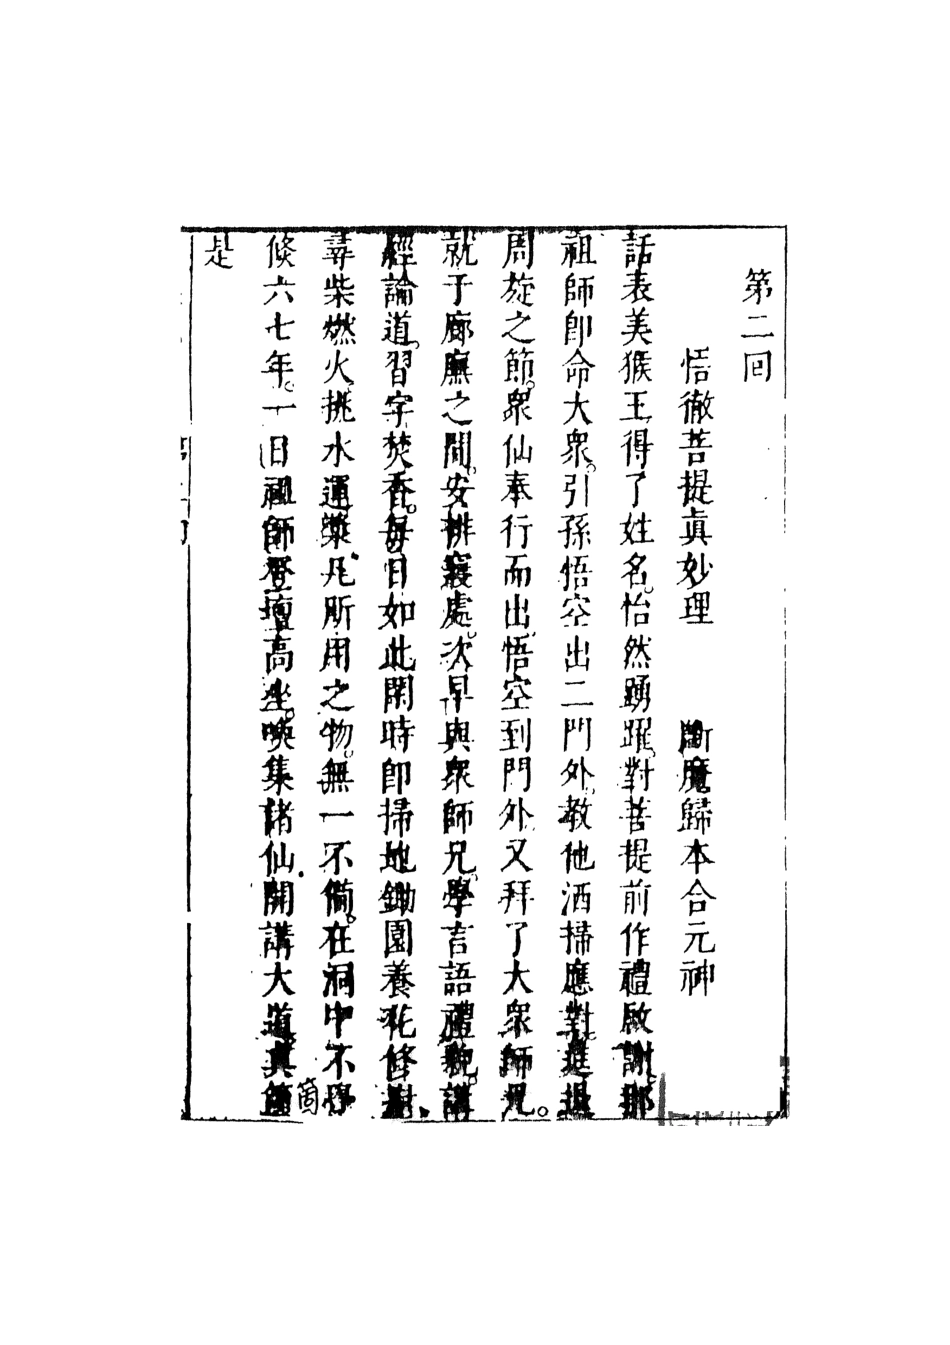 第二回
悟徹菩提真妙理 斷魔歸本合元神
話表美猴王得了姓名怡然踴躍對菩提前作禮啟謝那
祖師即命大衆引孫悟空出二門外教他洒掃應對進退
周旋之節衆仙奉行而出悟空到門外又拜了大衆師兄
就于廊廡之間安排寢處次早與衆師兄學言語禮貌講
經論道習字焚香每日如此閑時即掃地鋤園養花修樹
尋柴燃火挑水運漿凡所用之物無一不備在洞中不覺
倏六七年一日祖師登壇高坐喚集諸仙開講大道真箇
是
箇